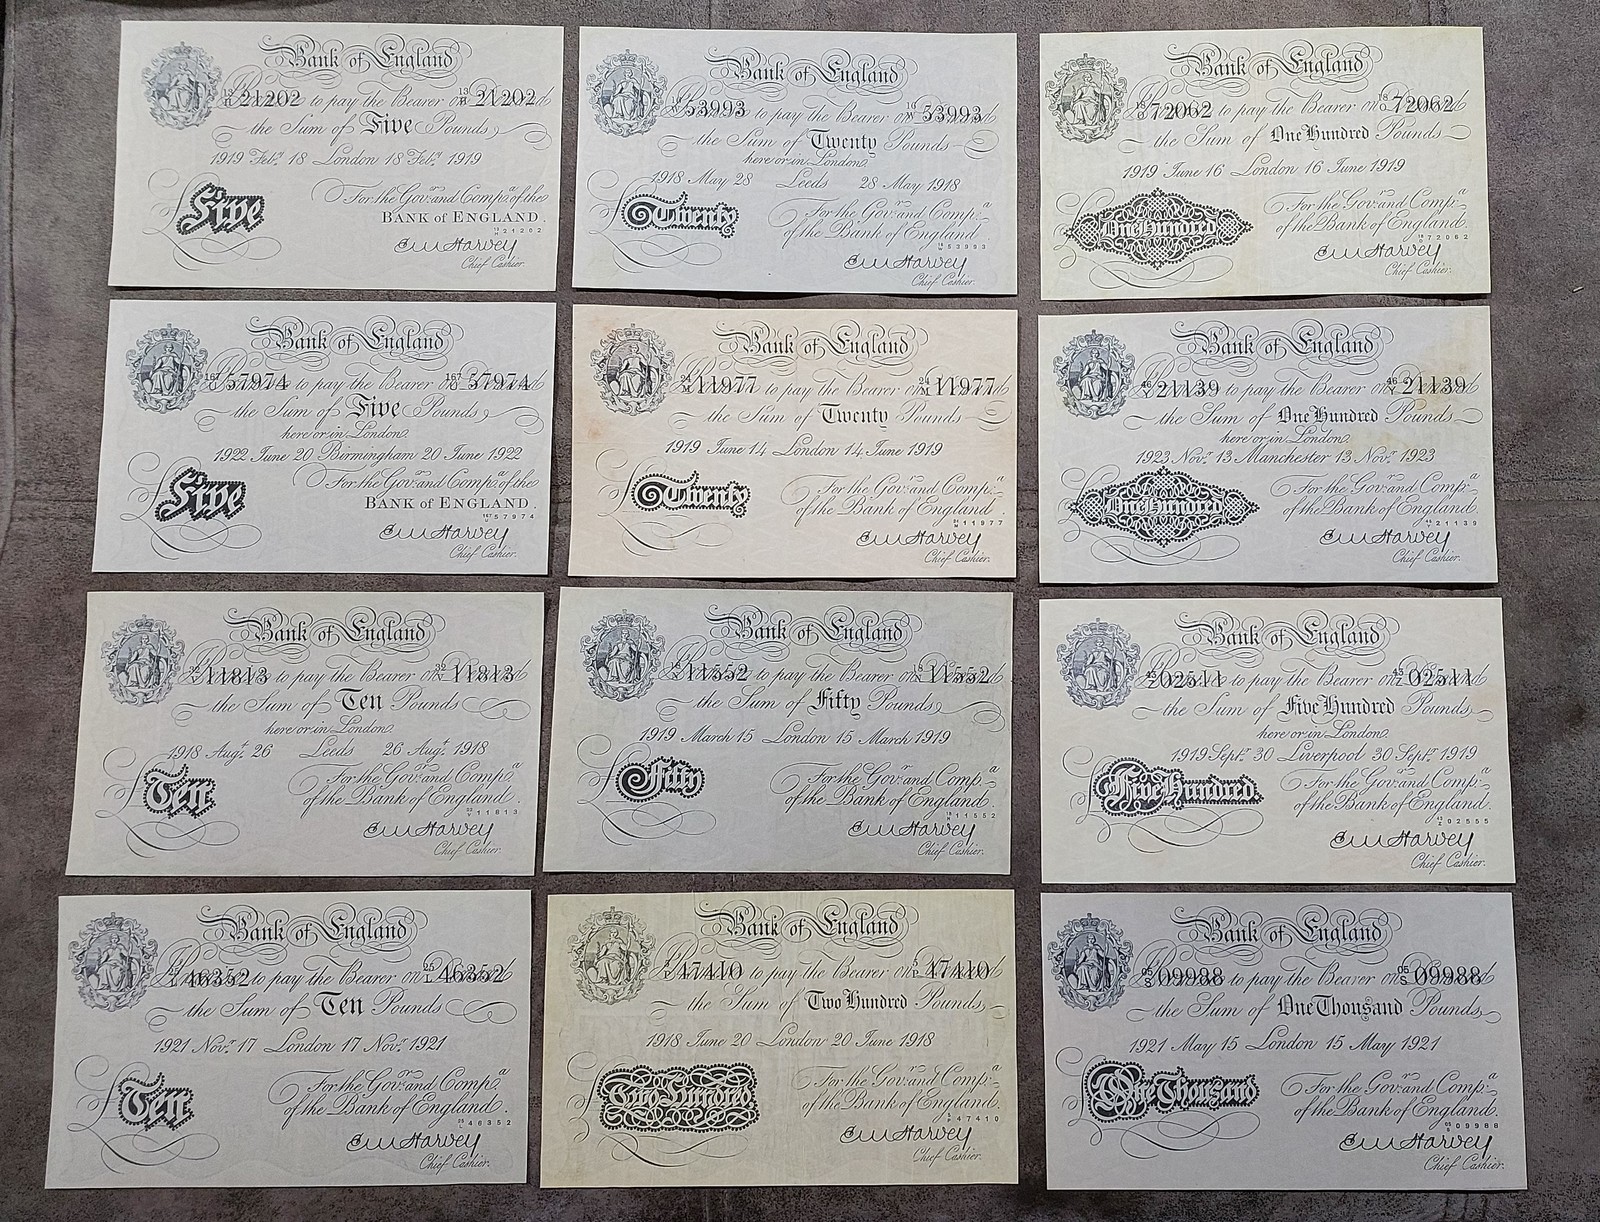 Bank of England
13/H 21202 to pay the Bearer on 13/H 21202
the Sum of Five Pounds
1919 Feb.y 18 London 18 Feb.y 1919
Five
For the Gov.r and Comp.a of the
BANK of ENGLAND.
13/H 21202
E M Harvey
Chief Cashier.
Bank of England
53993 to pay the Bearer on 53993
the Sum of Twenty Pounds
here or in London
1918 May 28 Leeds 28 May 1918
Twenty
For the Gov.r and Comp.a
of the Bank of England
53993
E M Harvey
Chief Cashier.
Bank of England
72062 to pay the Bearer on 72062
the Sum of One Hundred Pounds
1919 June 16 London 16 June 1919
One Hundred
For the Gov.r and Comp.a
of the Bank of England.
72062
E M Harvey
Chief Cashier.
Bank of England
57974 to pay the Bearer on 167 57974
the Sum of Five Pounds
here or in London
1922 June 20 Birmingham 20 June 1922
Five
For the Gov.r and Comp.a of the
BANK of ENGLAND.
57974
E M Harvey
Chief Cashier.
Bank of England
11977 to pay the Bearer on 11977
the Sum of Twenty Pounds
1919 June 14 London 14 June 1919
Twenty
For the Gov.r and Comp.a
of the Bank of England
11977
E M Harvey
Chief Cashier.
Bank of England
21139 to pay the Bearer on 21139
the Sum of One Hundred Pounds
here or in London
1923 Nov.r 13 Manchester 13 Nov.r 1923
One Hundred
For the Gov.r and Comp.a
of the Bank of England
21139
E M Harvey
Chief Cashier.
Bank of England
11813 to pay the Bearer on 11813
the Sum of Ten Pounds
here or in London
1918 Aug.t 26 Leeds 26 Aug.t 1918
Ten
For the Gov.r and Comp.a
of the Bank of England.
11813
E M Harvey
Chief Cashier.
Bank of England
11552 to pay the Bearer on 11552
the Sum of Fifty Pounds
1919 March 15 London 15 March 1919
Fifty
For the Gov.r and Comp.a
of the Bank of England.
11552
E M Harvey
Chief Cashier.
Bank of England
02511 to pay the Bearer on 02511
the Sum of Five Hundred Pounds
here or in London
1919 Sept.r 30 Liverpool 30 Sept.r 1919
Five Hundred
For the Gov.r and Comp.a
of the Bank of England.
02555
E M Harvey
Chief Cashier.
Bank of England
46352 to pay the Bearer on 25/L 46352
the Sum of Ten Pounds
1921 Nov.r 17 London 17 Nov.r 1921
Ten
For the Gov.r and Comp.a
of the Bank of England.
46352
E M Harvey
Chief Cashier.
Bank of England
47410 to pay the Bearer on 47410
the Sum of Two Hundred Pounds
1918 June 20 London 20 June 1918
Two Hundred
For the Gov.r and Comp.a
of the Bank of England.
47410
E M Harvey
Chief Cashier.
Bank of England
05/S 09988 to pay the Bearer on 05/S 09988
the Sum of One Thousand Pounds
1921 May 15 London 15 May 1921
One Thousand
For the Gov.r and Comp.a
of the Bank of England.
09988
E M Harvey
Chief Cashier.